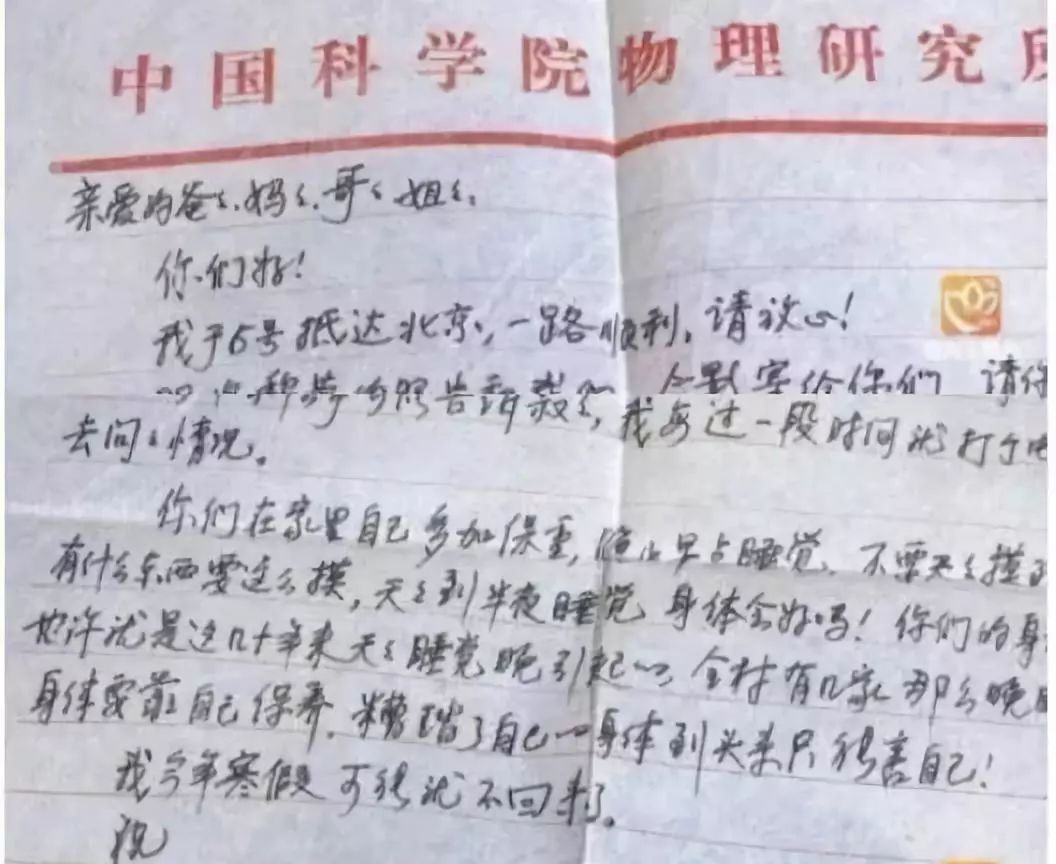 中国科学院物理研究所
亲爱的爸々、妈々、哥々、姐々：
你们好！
我于6号抵达北京，一路顺利，请放心！
告诉 寄给你们 请你
去问々情况。 我每过一段时间就打个电
你们在家里自己多加保重，晚上早点睡觉，不要天々摸到
有什么东西要这么摸，天々到半夜睡觉 身体会好吗！你们的身
也许就是这几十年来天々睡觉晚引起的 全村有几家那么晚
身体要靠自己保养，糟蹋了自己的身体到头来只能害自己！
我今年寒假可能就不回来了。
祝